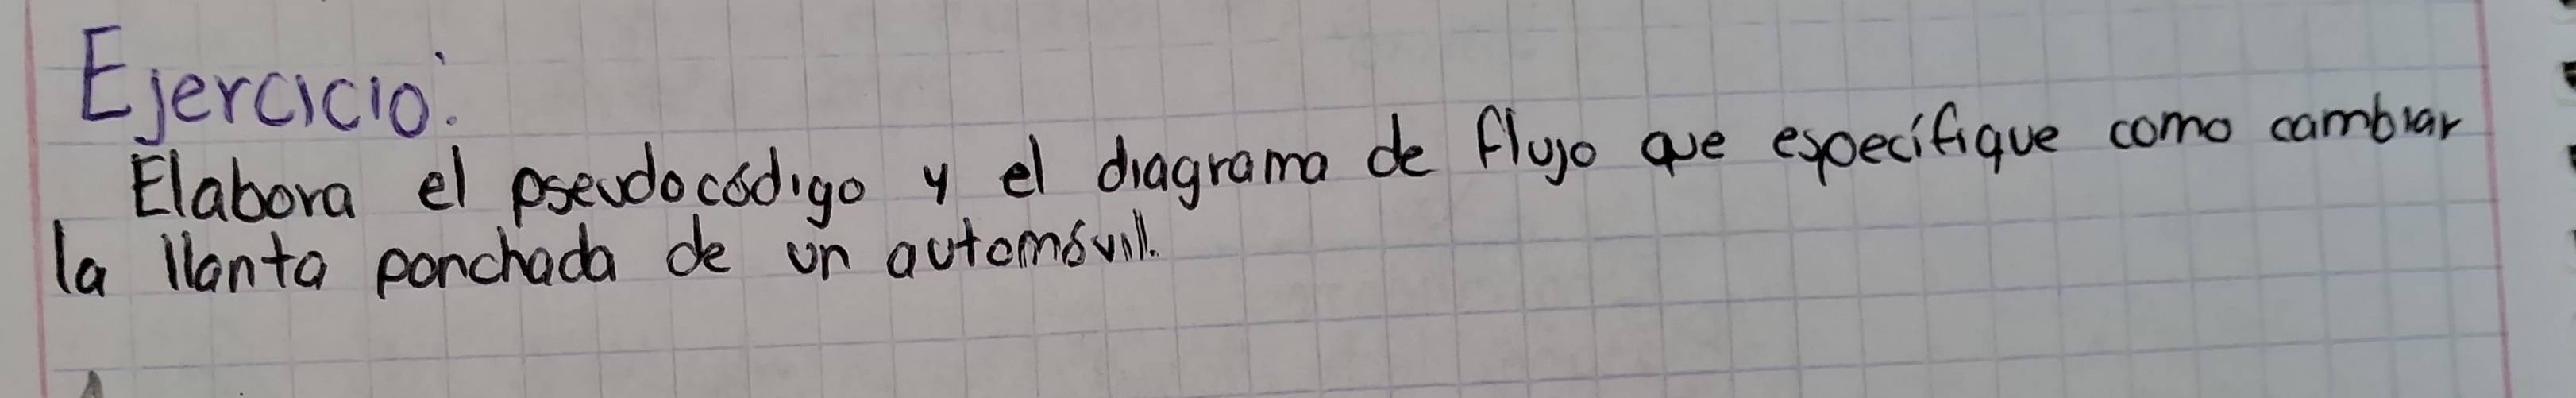 Ejercicio:
Elabora el pseudocódigo y el diagrama de flujo que específique como cambiar
la llanta ponchada de un automóvil.